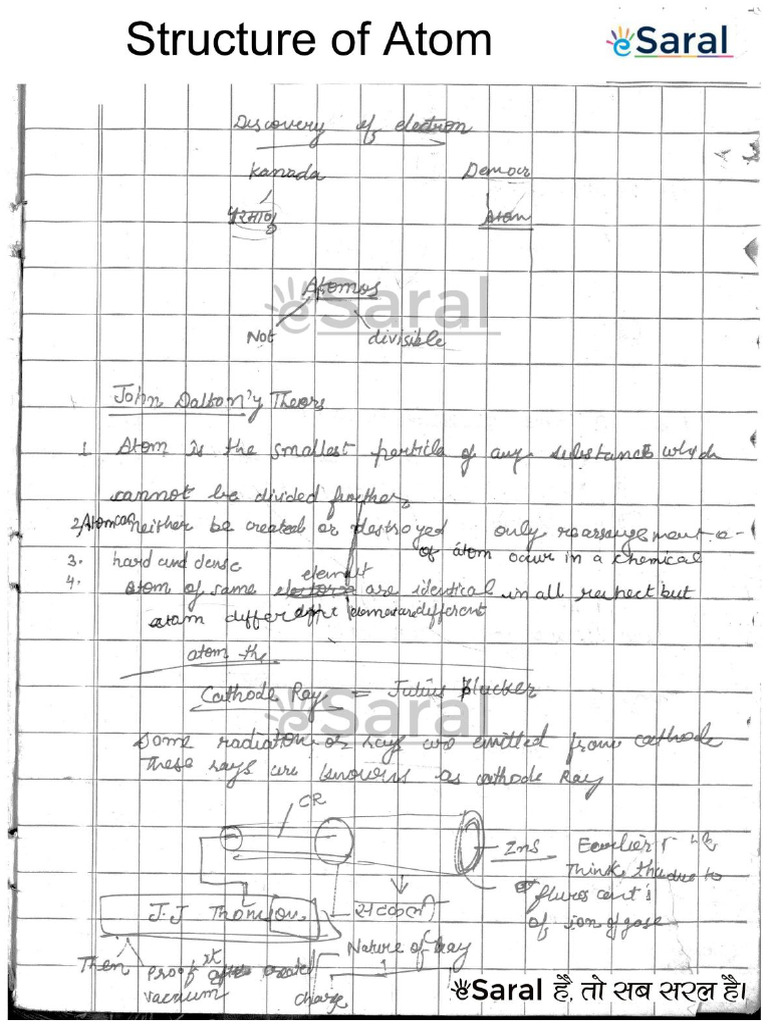 Structure of Atom
eSaral
Discovery of electron
Kanada Democr
परमाणु Atom
Atomos
eSaral
Not divisible
John Dalton'y Theory
1 Atom is the smallest particle of any substance which
cannot be divided further
2, Atom can neither be created or destroyed only rearrangement
of atom occur in a chemical
3. hard and dense
element
4. atom of same are identical in all respect but
atom different element are different
atom the
Cathode Ray = Julius Plucker
eSaral
Some radiation or rays are emitted from cathode
These rays are known as cathode Ray
CR
ZnS Earlier
Think due to
of ion of gase
J.J Thomson
Nature of Ray
Then proof
vacuum charge
eSaral है, तो सब सरल है।